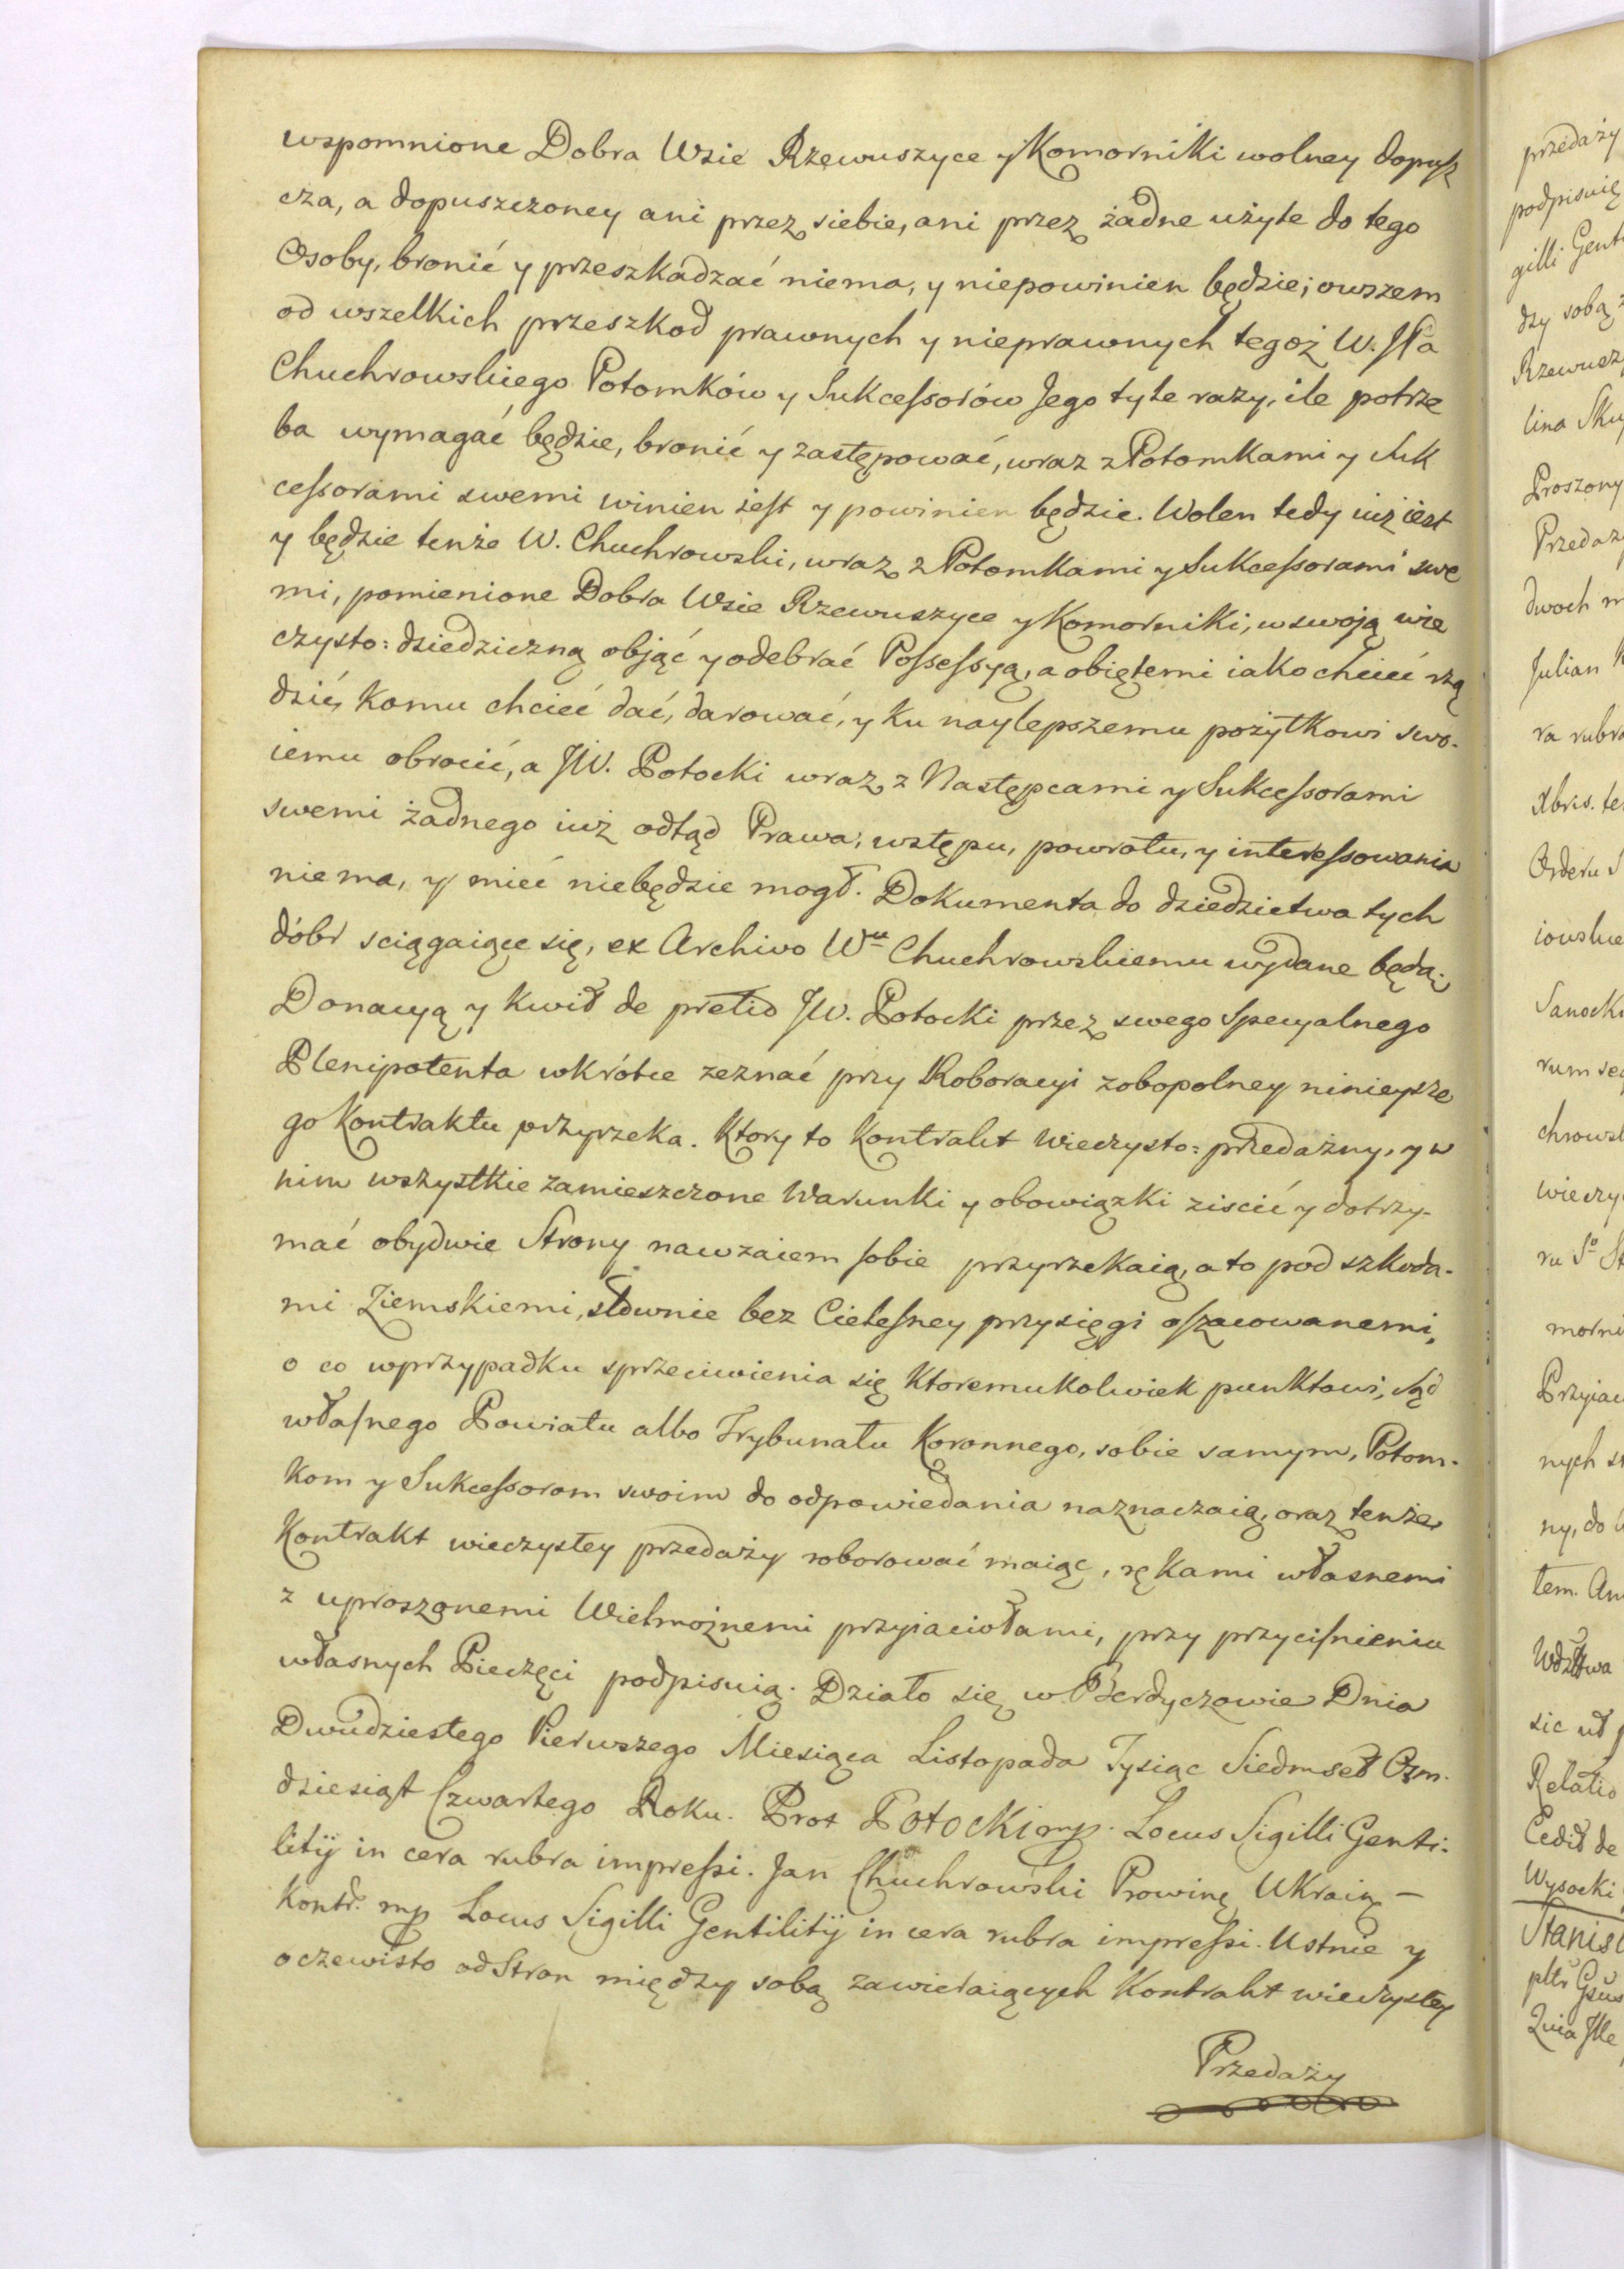 wspomnione Dobra Wsie Rzewuszyce y Komorniki wolney dopusz
cza, a dopuszczoney ani przez siebie, ani przez żadne użyte do tego
Osoby, bronić y przeszkadzać niema, y niepowinien będzie; owszem
od wszelkich przeszkod prawnych y nieprawnych tegoż W. JPa
Chuchrowskiego Potomków y Sukcessorów Jego tyle razy, ile potrze
ba wymagać będzie, bronić y zastępować, wraz z Potomkami y Suk
cessorami swemi winien iest y powinien będzie. Wolen tedy iuż iest
y będzie tenże W. Chuchrowski, wraz z Potomkami y Sukcessorami swe
mi, pomienione Dobra Wsie Rzewuszyce y Komorniki, w swoją wie
czysto: dziedziczną objąć y odebrać Possessyą, a obiętemi iako chcieć rzą
dzić, komu chcieć dać, darować, y ku naylepszemu pożytkowi swo-
iemu obrocić, a JW. Potocki wraz z Następcami y Sukcessorami
swemi żadnego iuż odtąd Prawa, wstępu, powrotu, y interessowania
nie ma, y mieć niebędzie mogł. Dokumenta do dziedzictwa tych
dóbr sciągaiące się, ex Archivo Wu Chuchrowskiemu wydane będą;
Donacyą y kwit de pretio JW. Potocki przez swego Specyalnego
Plenipotenta wkrótce zeznać przy Roboracyi zobopolney ninieysze
go Kontraktu przyrzeka. Ktory to Kontrakt wieczysto: przedażny, y w
nim wszystkie zamieszczone Warunki y obowiązki ziscić y dotrzy-
mać obydwie Strony nawzaiem sobie przyrzekaią, a to pod szkoda-
mi Ziemskiemi, słownie bez Cielesney przysięgi oszacowanemi,
o co w przypadku sprzeciwienia się ktoremukolwiek punktowi, Sąd
własnego Powiatu albo Trybunału Koronnego, sobie samym, Potom-
kom y Sukcessorom swoim do odpowiedania naznaczaią, oraz tenże
Kontrakt wieczystey przedaży roborować maiąc, rękami własnemi
z uproszonemi Wielmożnemi przyiaciołami, przy przyciśnieniu
własnych Pieczęci podpisuią. Działo się w Berdyczowie Dnia
Dwudziestego Pierwszego Miesiąca Listopada Tysiąc Siedmset Ozm-
dziesiąt Czwartego Roku. Prot Potocki mp. Locus Sigilli Genti-
litij in cera rubra impressi. Jan Chuchrowski Prowinc Ukrain –
Kontr. mp Locus Sigilli Gentilitij in cera rubra impressi. Ustnie y
oczewisto od Stron między sobą zawieraiących Kontrakt wieczystey
Przedaży
przedaży
podpisuię
gilli Genti
dzy sobą
Rzewusz
lina
Proszony
Przedaż
dwoch
Julian
ra rubra
Xbris.
Orderu
iowskie
Sanocki
rum
chrowsk
wieczy
ru So
morni
Przyiac
nych
ny, do
tem.
Wdztwa
sic ut
Relatio
Cedit de
Wysocki
Stanis